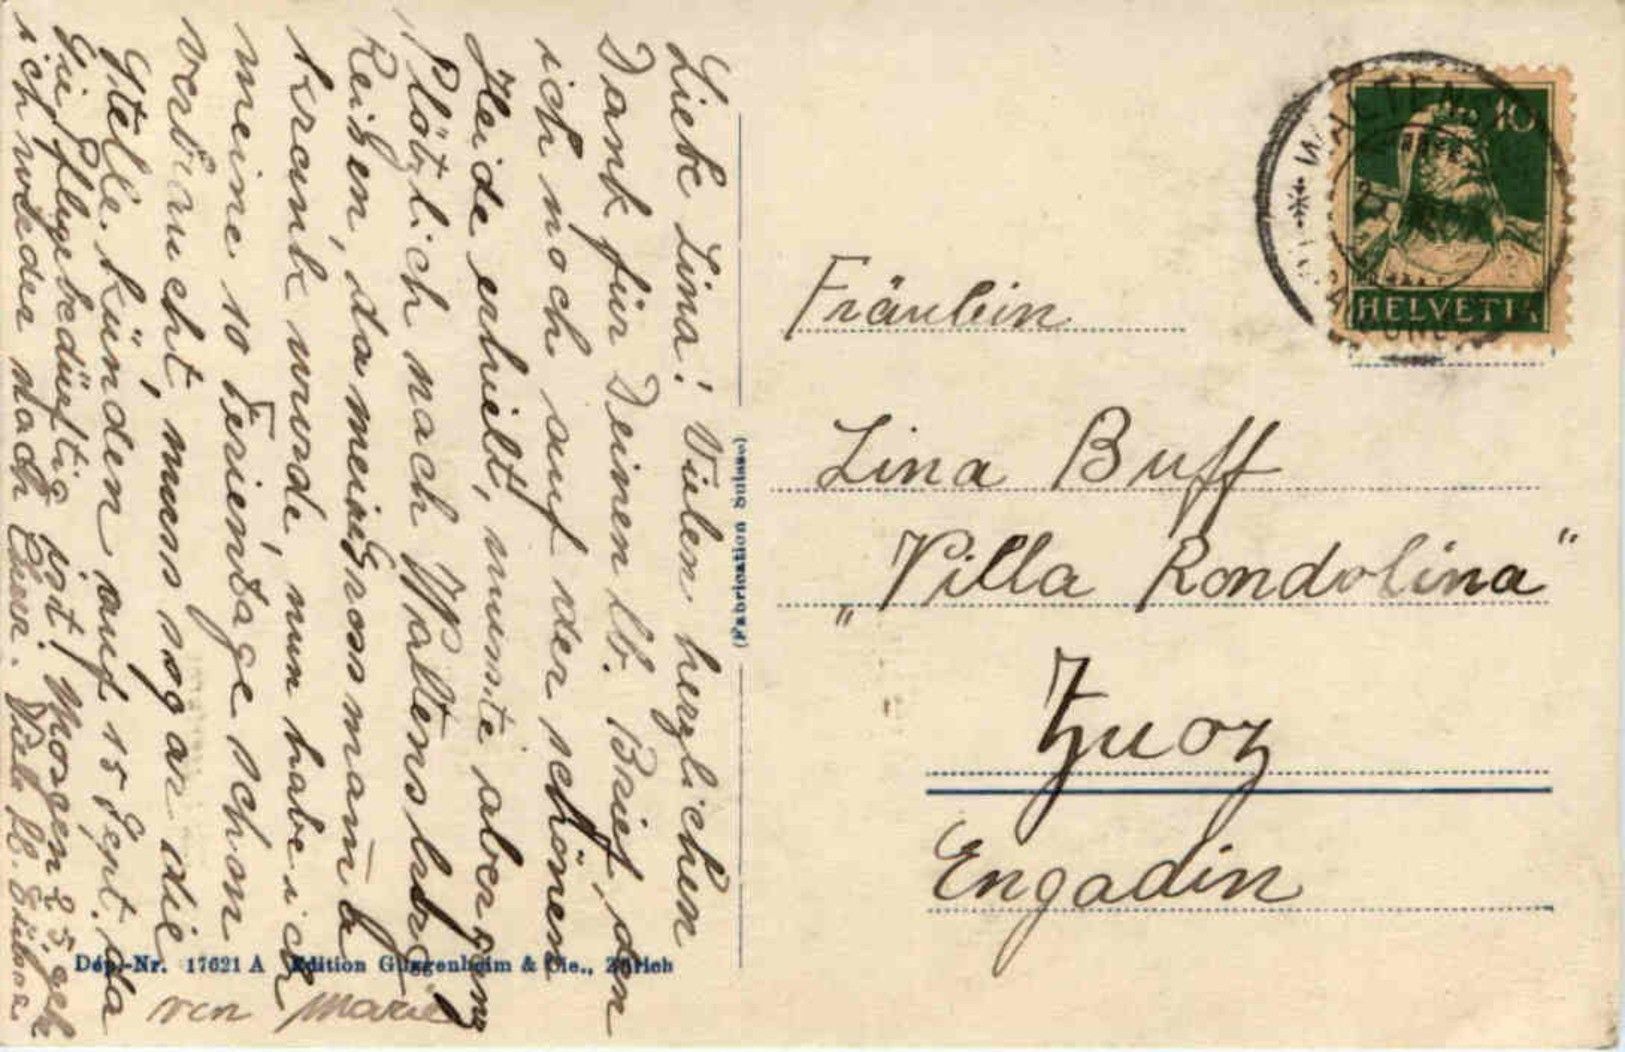 Liebe Lina! Vielen herzlichen
Dank für Deinen lb. Brief, den
ich noch auf der schönen
Heide erhielt, musste aber ganz
Plötzlich nach Waltensburg
Reisen, da mein Grossmama
krank wurde, nun habe ich
meine 10 Ferientage schon
verbraucht, muss sogar die
Stelle künden auf 15 Sept. da
sie pflegebedürftig ist! Morgen 25 geh
ich wieder nach Chur. Viele lb. Grüsse
von Marie
(Fabrication Suisse)
Dép.-Nr. 17621 A Edition Guggenheim & Cie., Zürich
10
HELVETIA
WALTENSBURG
Fräulein
Lina Buff
„Villa Rondolina"
Zuoz
Engadin